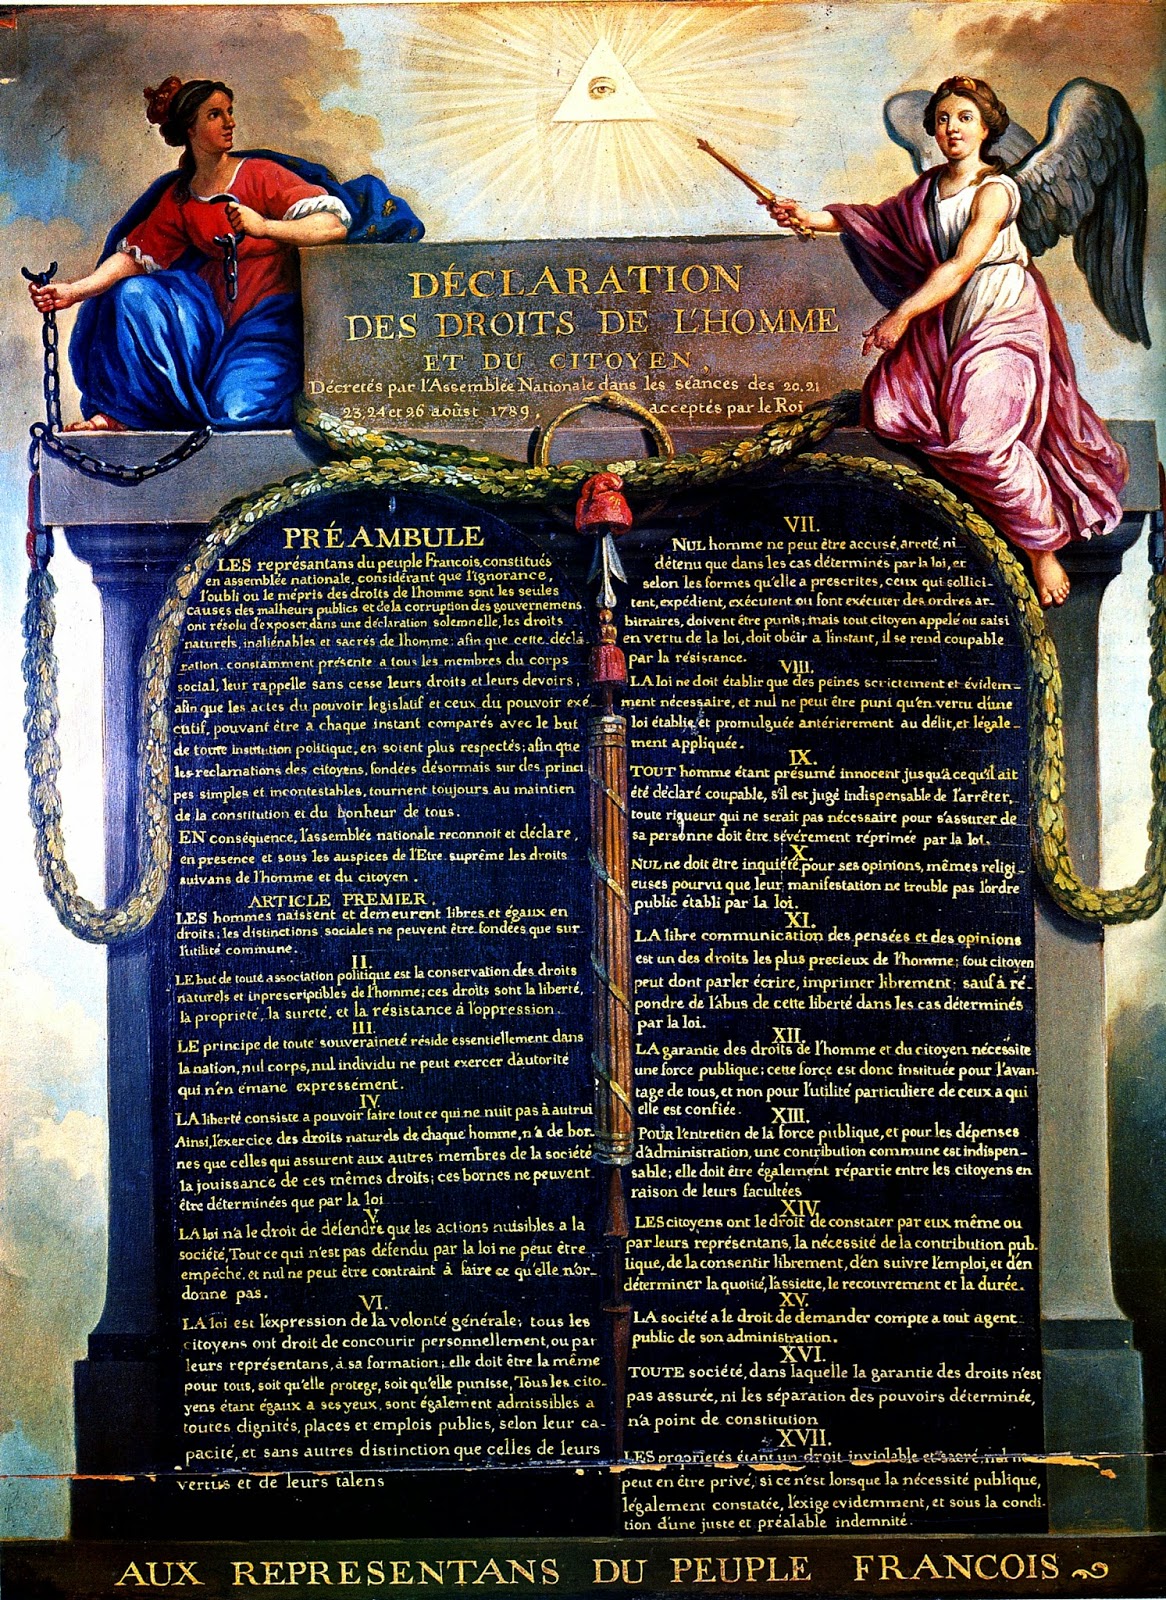 DÉCLARATION
DES DROITS DE L'HOMME
ET DU CITOYEN,
Décretés par l'Assemblée Nationale dans les séances des 20, 21
23, 24 et 26 août 1789, acceptés par le Roi
PRÉAMBULE
LES représantans du peuple Francois, constitués
en assemblée nationale, considérant que l'ignorance,
l'oubli ou le mépris des droits de l'homme sont les seules
causes des malheurs publics et de la corruption des gouvernemens
ont résolu d'exposer dans une déclaration solemnelle, les droits
naturels, inaliénables et sacrés de l'homme; afin que cette décla-
ration, constamment présente a tous les membres du corps
social, leur rappelle sans cesse leurs droits et leurs devoirs;
afin que les actes du pouvoir legislatif et ceux du pouvoir exé-
cutif, pouvant être a chaque instant comparés avec le but
de toute institution politique, en soient plus respectés; afin que
les reclamations des citoyens, fondées désormais sur des princi-
pes simples et incontestables, tournent toujours au maintien
de la constitution et du bonheur de tous.
EN conséquence, l'assemblée nationale reconnoit et déclare,
en presence et sous les auspices de l'Etre suprême les droits
suivans de l'homme et du citoyen.
ARTICLE PREMIER.
LES hommes naissent et demeurent libres et égaux en
droits; les distinctions sociales ne peuvent être fondées que sur
l'utilité commune.
II.
LE but de toute association politique est la conservation des droits
naturels et inprescriptibles de l'homme; ces droits sont la liberté,
la propriété, la sureté, et la résistance à l'oppression.
III.
LE principe de toute souveraineté réside essentiellement dans
la nation, nul corps, nul individu ne peut exercer d'autorité
qui n'en émane expressément.
IV.
LA liberté consiste a pouvoir faire tout ce qui ne nuit pas à autrui
Ainsi, l'exercice des droits naturels de chaque homme, n'a de bor-
nes que celles qui assurent aux autres membres de la société
la jouissance de ces mêmes droits; ces bornes ne peuvent
être déterminées que par la loi
V.
LA loi n'a le droit de défendre que les actions nuisibles a la
société, Tout ce qui n'est pas défendu par la loi ne peut être
empêché, et nul ne peut être contraint à faire ce qu'elle n'or-
donne pas.
VI.
LA loi est l'expression de la volonté générale; tous les
citoyens ont droit de concourir personnellement, ou par
leurs représentans, à sa formation; elle doit être la même
pour tous, soit qu'elle protege, soit qu'elle punisse, Tous les cito-
yens étant égaux a ses yeux, sont également admissibles a
toutes dignités, places et emplois publics, selon leur ca-
pacité, et sans autres distinction que celles de leurs
vertus et de leurs talens
VII.
NUL homme ne peut être accusé, arreté, ni
détenu que dans les cas déterminés par la loi, et
selon les formes qu'elle a prescrites, ceux qui sollici-
tent, expédient, exécutent ou font exécuter des ordres ar-
bitraires, doivent être punis; mais tout citoyen appelé ou saisi
en vertu de la loi, doit obéir a l'instant, il se rend coupable
par la résistance.
VIII.
LA loi ne doit établir que des peines strictement et évidem-
ment nécessaire, et nul ne peut être puni qu'en vertu d'une
loi établie et promulguée antérierement au délit, et légale-
ment appliquée.
IX.
TOUT homme étant présumé innocent jusqu'à ce qu'il ait
été déclaré coupable, s'il est jugé indispensable de l'arrêter,
toute rigueur qui ne serait pas nécessaire pour s'assurer de
sa personne doit être sévèrement réprimée par la loi.
X.
NUL ne doit être inquiété pour ses opinions, mêmes religi-
euses pourvu que leur manifestation ne trouble pas l'ordre
public établi par la loi.
XI.
LA libre communication des pensées et des opinions
est un des droits les plus precieux de l'homme; tout citoyen
peut dont parler écrire, imprimer librement; sauf à ré-
pondre de l'abus de cette liberté dans les cas déterminés
par la loi.
XII.
LA garantie des droits de l'homme et du citoyen nécessite
une force publique; cette force est donc instituée pour l'avan-
tage de tous, et non pour l'utilité particuliere de ceux a qui
elle est confiée.
XIII.
POUR l'entretien de la force publique, et pour les dépenses
d'administration, une contribution commune est indispen-
sable; elle doit être également répartie entre les citoyens en
raison de leurs facultées
XIV.
LES citoyens ont le droit de constater par eux même ou
par leurs représentans, la nécessité de la contribution pub-
lique, de la consentir librement, d'en suivre l'emploi, et d'en
déterminer la quotité, l'assiette, le recouvrement et la durée.
XV.
LA société a le droit de demander compte a tout agent
public de son administration.
XVI.
TOUTE société, dans laquelle la garantie des droits n'est
pas assurée, ni les séparation des pouvoirs déterminée,
n'a point de constitution
XVII.
LES proprietés étant un droit inviolable et sacré, nul ne
peut en être privé, si ce n'est lorsque la nécessité publique,
légalement constatée, l'exige evidemment, et sous la condi-
tion d'une juste et préalable indemnité.
AUX REPRESENTANS DU PEUPLE FRANCOIS